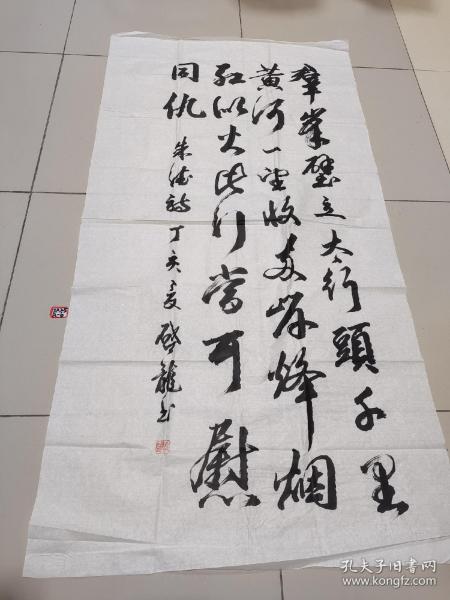 羣峯壁立太行頭千里
黄河一望收两岸烽烟
红似火此行當可慰
同仇 朱德詩 丁亥夏 啟龍书
孔夫子旧书网
www.kongfz.com